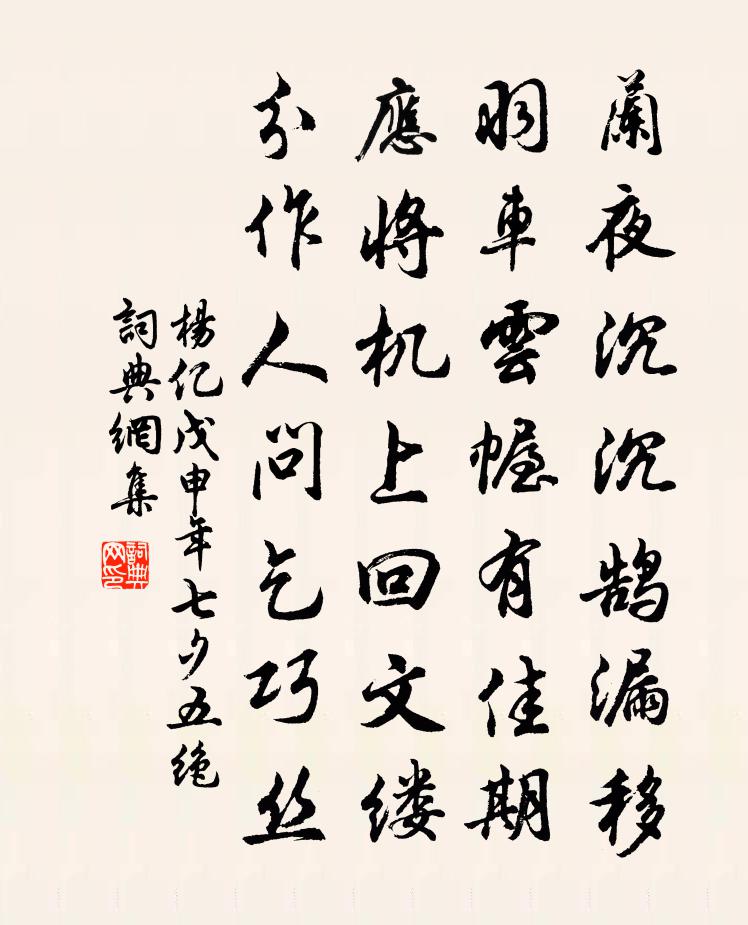 蘭夜沉沉鵠漏移
羽車雲幄有佳期
應將机上回文缕
分作人间乞巧丝
楊亿戊申年七夕五绝
詞典網集
詞典网印